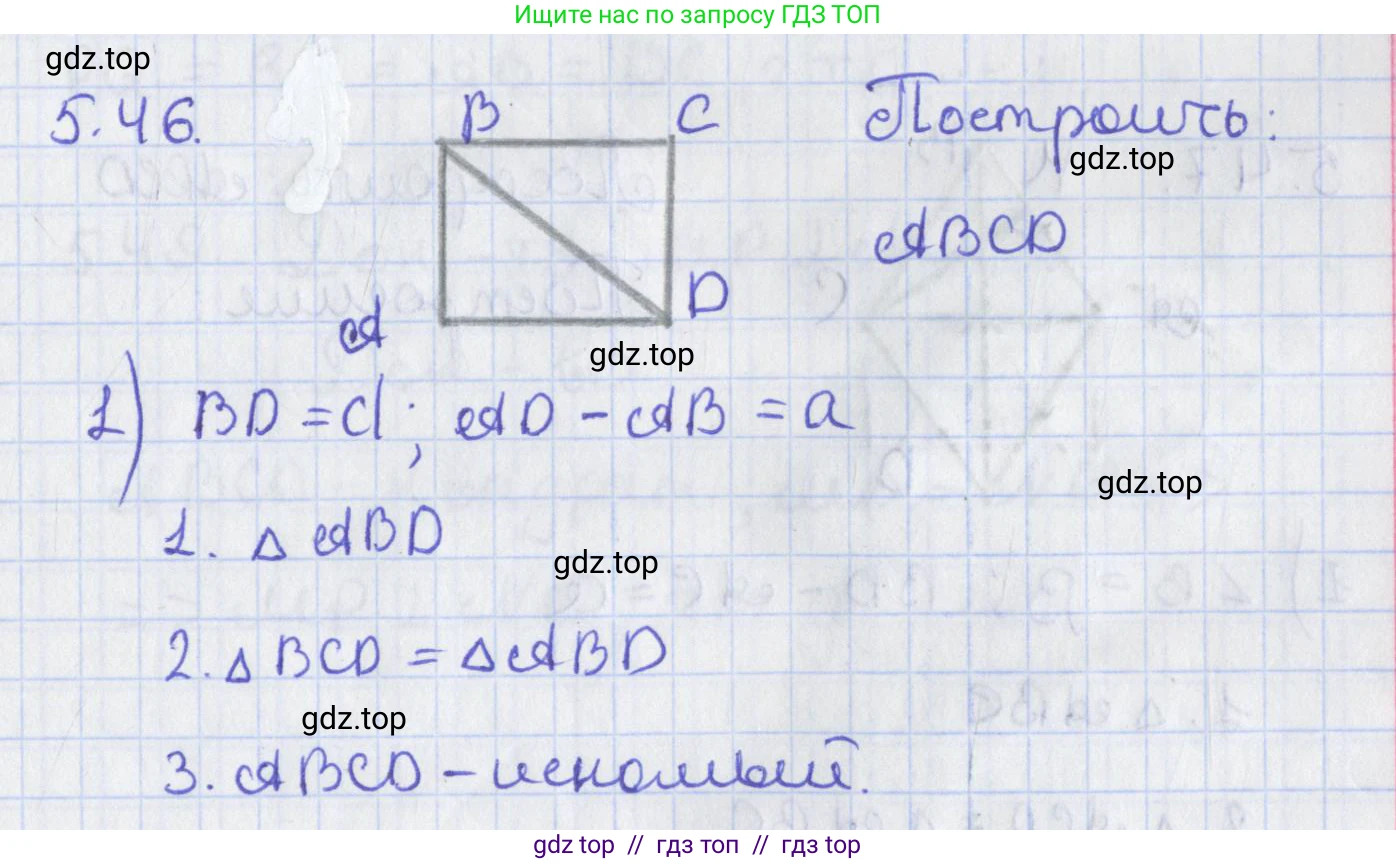 Ищите нас по запросу ГДЗ ТОП
gdz.top
5.46.
B C
Построить:
gdz.top
ABCD
D
A
gdz.top
1) BD = d; AD - AB = a
gdz.top
1. △ ABD
gdz.top
2. △ BCD = △ ABD
gdz.top
3. ABCD - искомый.
gdz top // гдз топ // гдз top